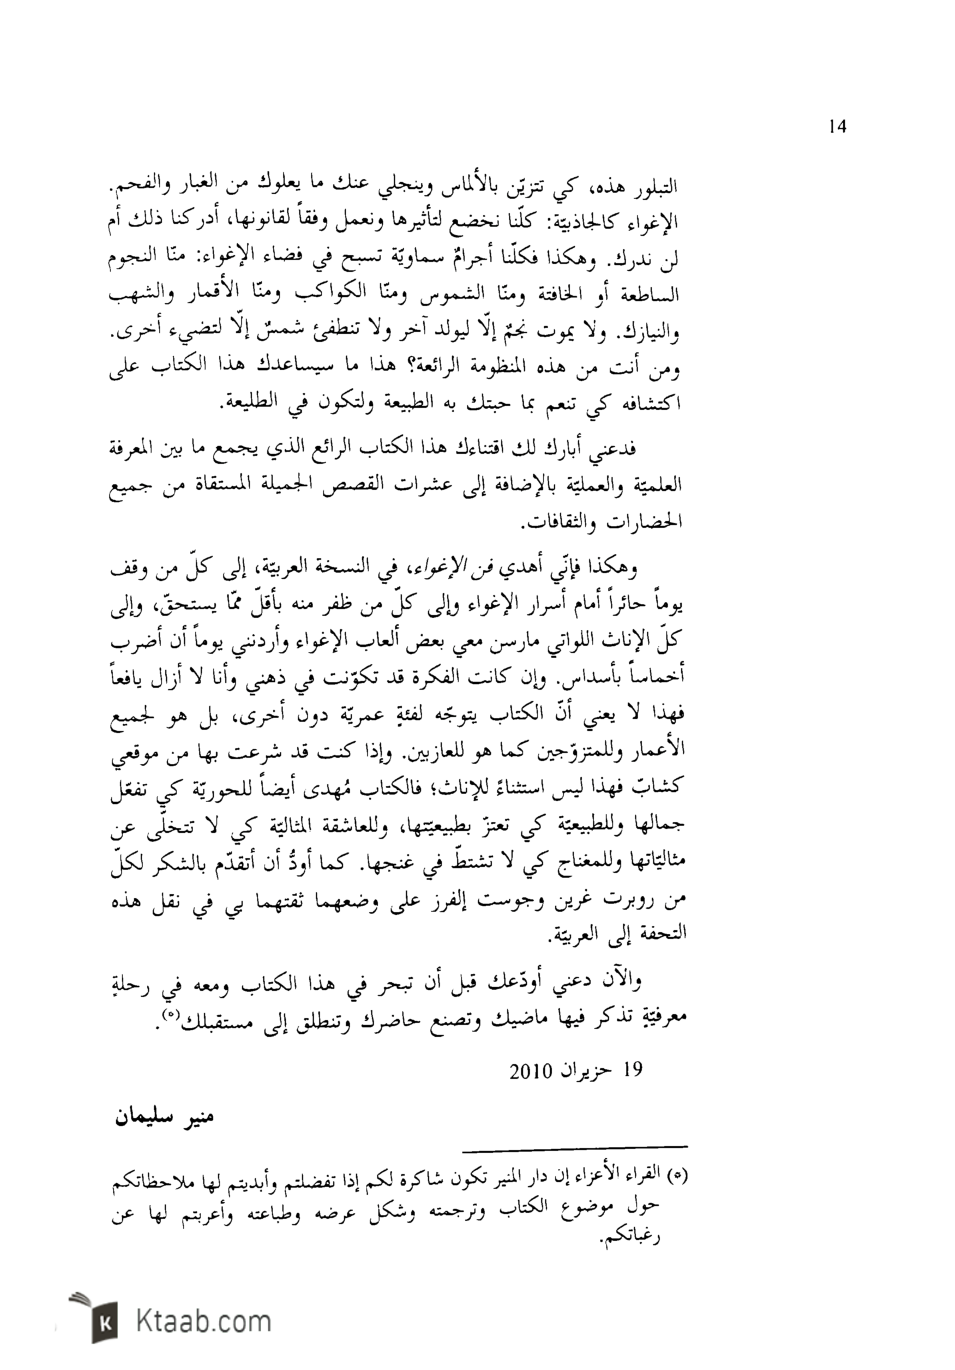 14
التبلور هذه، كي تتزيّن بالألماس وينجلي عنك ما يعلوك من الغبار والفحم.
الإغواء كالجاذبيّة: كلّنا نخضع لتأثيرها ونعمل وفقاً لقانونها، أدركنا ذلك أم
لن ندرك. وهكذا فكلّنا أجرامٌ سماويّة تسبح في فضاء الإغواء: منّا النجوم
الساطعة أو الخافتة ومنّا الشموس ومنّا الكواكب ومنّا الأقمار والشهب
والنيازك. ولا يموت نجمٌ إلّا ليولد آخر ولا تنطفئ شمسٌ إلّا لتضيء أخرى.
ومن أنت من هذه المنظومة الرائعة؟ هذا ما سيساعدك هذا الكتاب على
اكتشافه كي تنعم بما حبتك به الطبيعة ولتكون في الطليعة.
فدعني أبارك لك اقتناءك هذا الكتاب الرائع الذي يجمع ما بين المعرفة
العلميّة والعمليّة بالإضافة إلى عشرات القصص الجميلة المستقاة من جميع
الحضارات والثقافات.
وهكذا فإنّي أهدي فن الإغواء، في النسخة العربيّة، إلى كلّ من وقف
يوماً حائراً أمام أسرار الإغواء وإلى كلّ من ظفر منه بأقلّ ممّا يستحقّ، وإلى
كلّ الإناث اللواتي مارسن معي بعض ألعاب الإغواء وأردنني يوماً أن أضرب
أخماساً بأسداس. وإن كانت الفكرة قد تكوّنت في ذهني وأنا لا أزال يافعاً
فهذا لا يعني أنّ الكتاب يتوجّه لفئةٍ عمريّة دون أخرى، بل هو لجميع
الأعمار وللمتزوّجين كما هو للعازبين. وإذا كنت قد شرعت بها من موقعي
كشابّ فهذا ليس استثناءً للإناث؛ فالكتاب مُهدى أيضاً للحوريّة كي تفعّل
جمالها وللطبيعيّة كي تعتزّ بطبيعيّتها، وللعاشقة المثاليّة كي لا تتخلّى عن
مثاليّاتها وللمغناج كي لا تشتطّ في غنجها. كما أودُّ أن أتقدّم بالشكر لكلّ
من روبرت غرين وجوست إلفرز على وضعهما ثقتهما بي في نقل هذه
التحفة إلى العربيّة.
والآن دعني أودّعك قبل أن تبحر في هذا الكتاب ومعه في رحلةٍ
معرفيّةٍ تذكر فيها ماضيك وتصنع حاضرك وتنطلق إلى مستقبلك(٥).
19 حزيران 2010
منير سليمان
(٥) القراء الأعزاء إن دار المنير تكون شاكرة لكم إذا تفضلتم وأبديتم لها ملاحظاتكم
حول موضوع الكتاب وترجمته وشكل عرضه وطباعته وأعربتم لها عن
رغباتكم.
K Ktaab.com